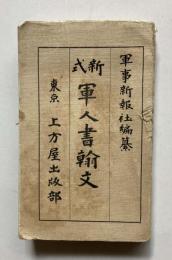 軍事新報社編纂
新式
軍人書翰文
東京 上方屋出版部